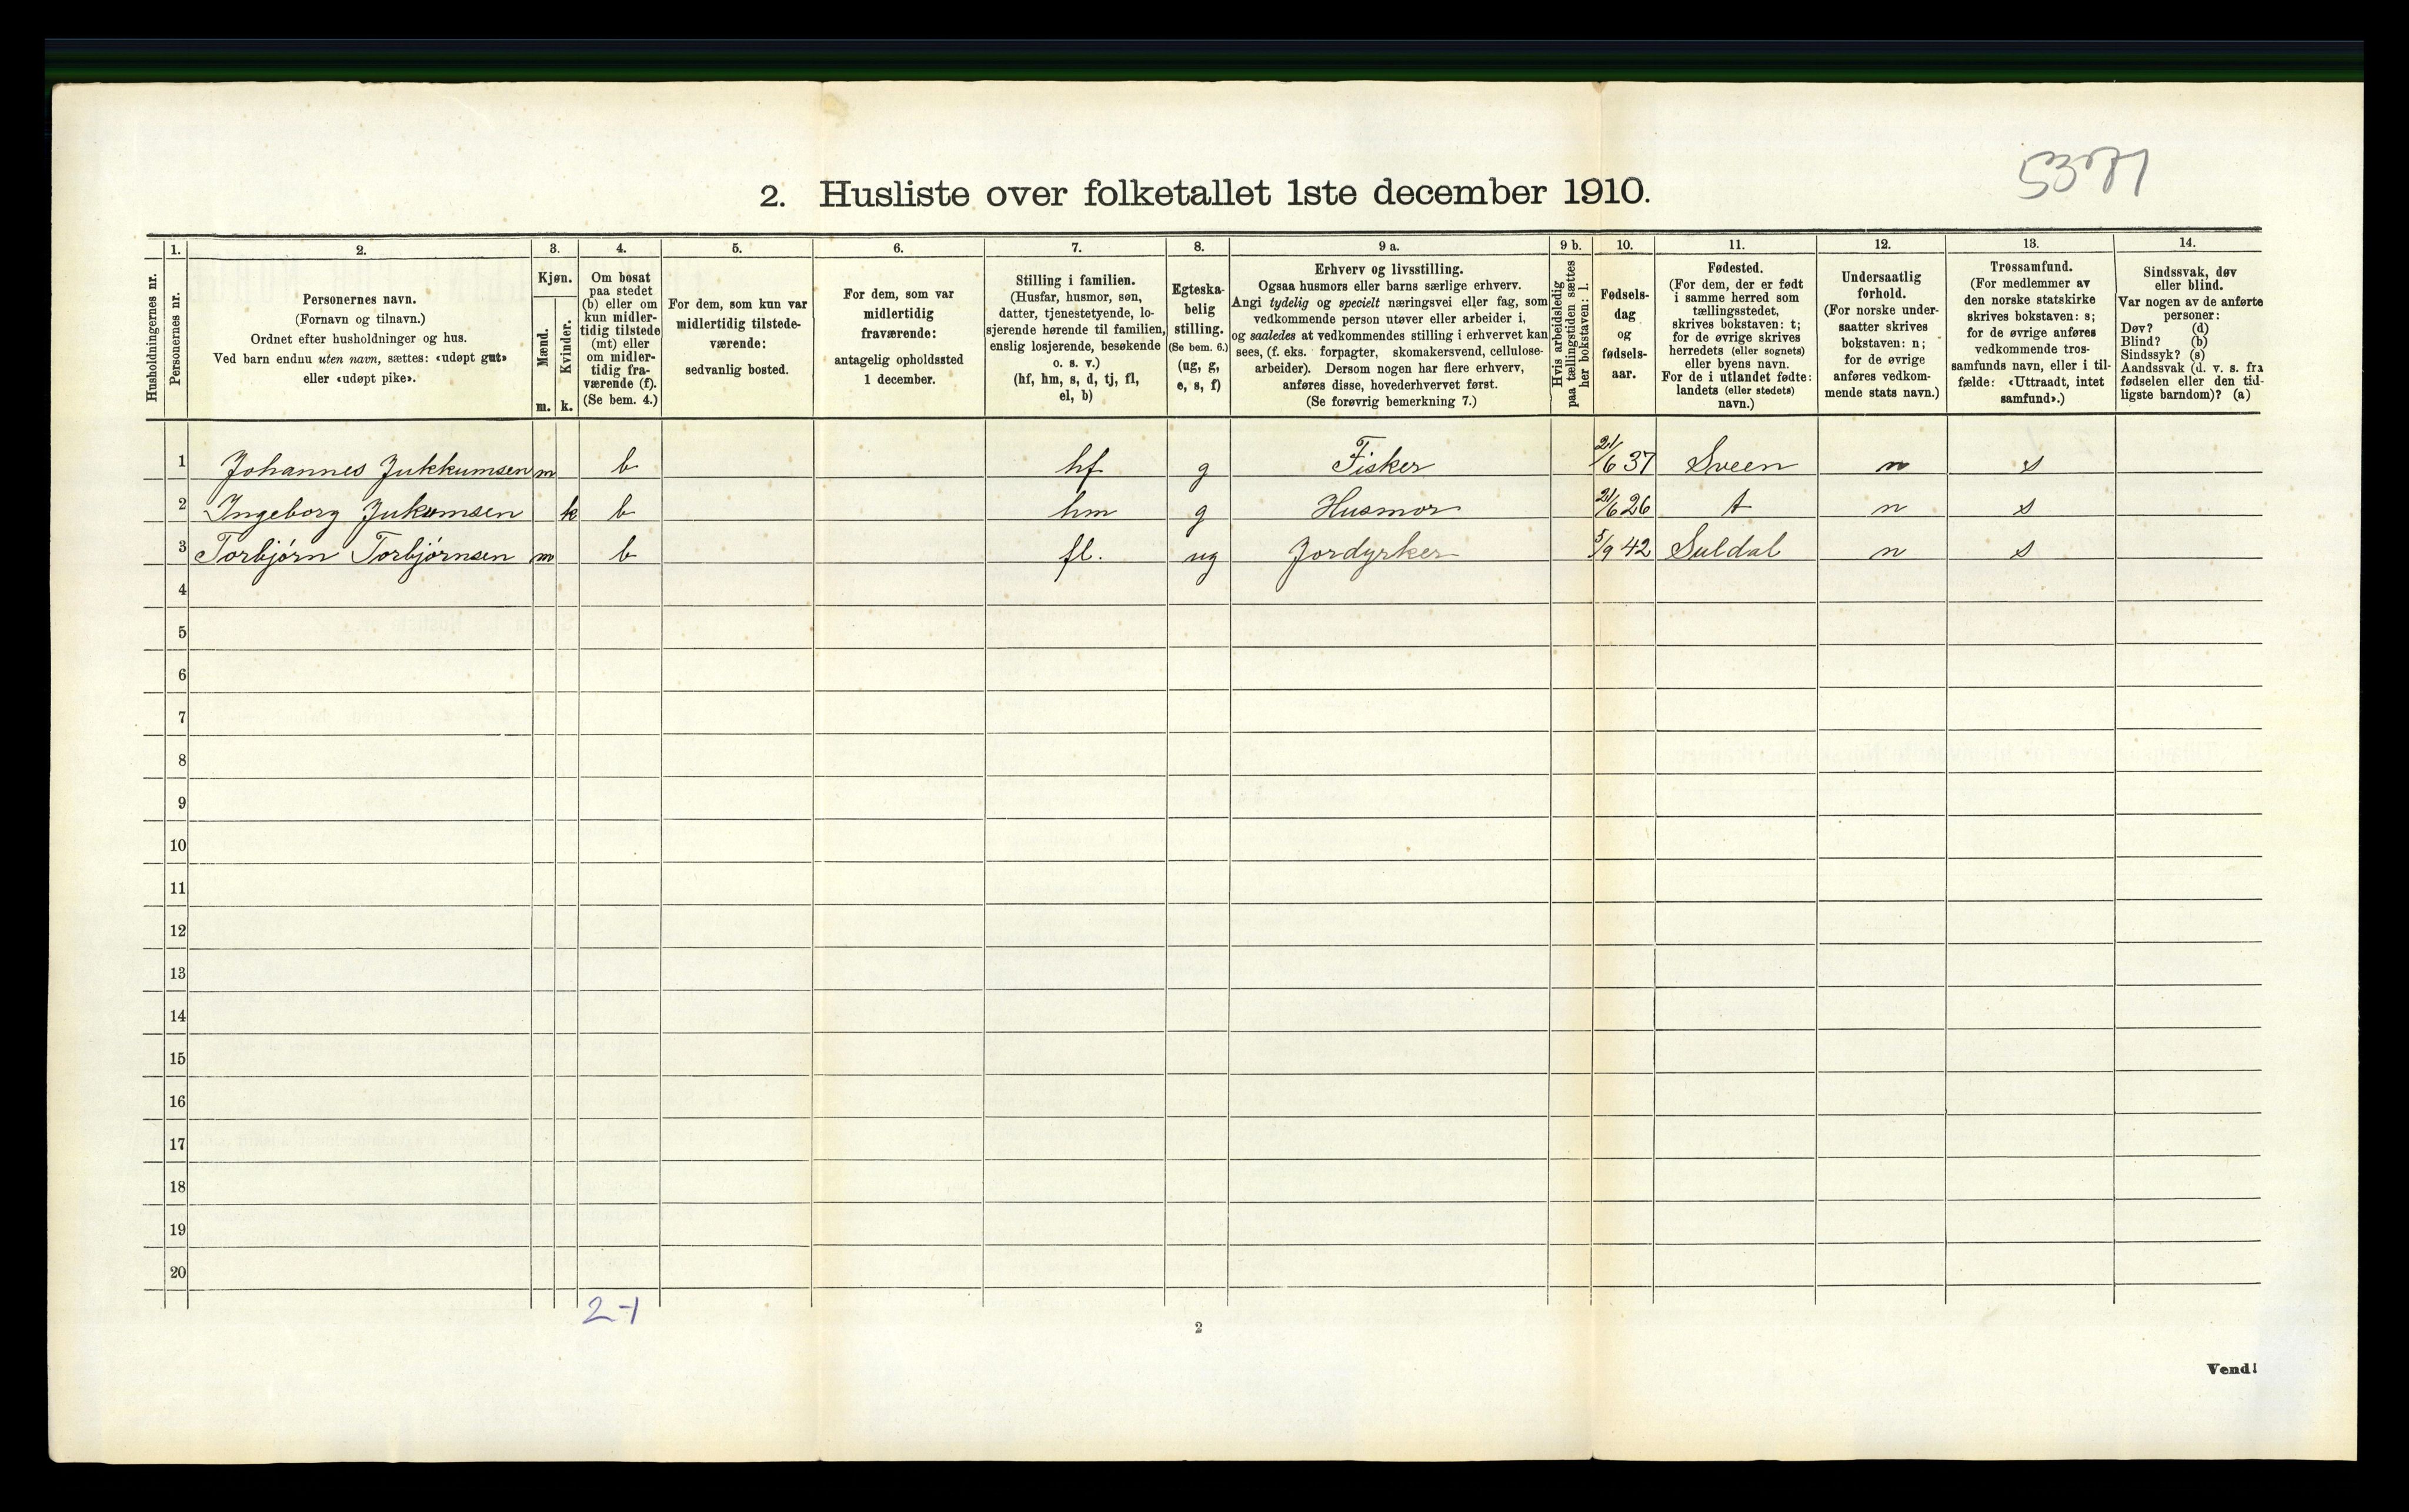 5371
2. Husliste over folketallet 1ste december 1910.
Husholdningernes nr.
1.
Personernes nr.
2.
Personernes navn.
(Fornavn og tilnavn.)
Ordnet efter husholdninger og hus.
Ved barn endnu uten navn, sættes: «udøpt gut»
eller «udøpt pike».
3.
Kjøn.
Mænd.
m.
Kvinder.
k.
4.
Om bosat
paa stedet
(b) eller om
kun midler-
tidig tilstede
(mt) eller
om midler-
tidig fra-
værende (f).
(Se bem. 4.)
5.
For dem, som kun var
midlertidig tilstede-
værende:
sedvanlig bosted.
6.
For dem, som var
midlertidig
fraværende:
antagelig opholdssted
1 december.
7.
Stilling i familien.
(Husfar, husmor, søn,
datter, tjenestetyende, lo-
sjerende hørende til familien,
enslig losjerende, besøkende
o. s. v.)
(hf, hm, s, d, tj, fl,
el, b)
8.
Egteska-
belig
stilling.
(Se bem. 6.)
(ug, g,
e, s, f)
9 a.
Erhverv og livsstilling.
Ogsaa husmors eller barns særlige erhverv.
Angi tydelig og specielt næringsvei eller fag, som
vedkommende person utøver eller arbeider i,
og saaledes at vedkommendes stilling i erhvervet kan
sees, (f. eks. forpagter, skomakersvend, cellulose-
arbeider). Dersom nogen har flere erhverv,
anføres disse, hovederhvervet først.
(Se forøvrig bemerkning 7.)
9 b.
Hvis arbeidsledig
paa tællingstiden sættes
her bokstaven: l.
10.
Fødsels-
dag
og
fødsels-
aar.
11.
Fødested.
(For dem, der er født
i samme herred som
tællingsstedet,
skrives bokstaven: t;
for de øvrige skrives
herredets (eller sognets)
eller byens navn.
For de i utlandet fødte:
landets (eller stedets)
navn.)
12.
Undersaatlig
forhold.
(For norske under-
saatter skrives
bokstaven: n;
for de øvrige
anføres vedkom-
mende stats navn.)
13.
Trossamfund.
(For medlemmer av
den norske statskirke
skrives bokstaven: s;
for de øvrige anføres
vedkommende tros-
samfunds navn, eller i til-
fælde: «Uttraadt, intet
samfund».)
14.
Sindssvak, døv
eller blind.
Var nogen av de anførte
personer:
Døv? (d)
Blind? (b)
Sindssyk? (s)
Aandssvak (d. v. s. fra
fødselen eller den tid-
ligste barndom)? (a)
1 Johannes Jukkumsen m b hf g Fisker 21/6 37 Sveen n s
2 Ingeborg Jukumsen k b hm g Husmor 21/6 26 t n s
3 Torbjørn Torbjørnsen m b fl. ug Jordyrker 5/9 42 Suldal n s
4
5
6
7
8
9
10
11
12
13
14
15
16
17
18
19
20
2-1
2
Vend!